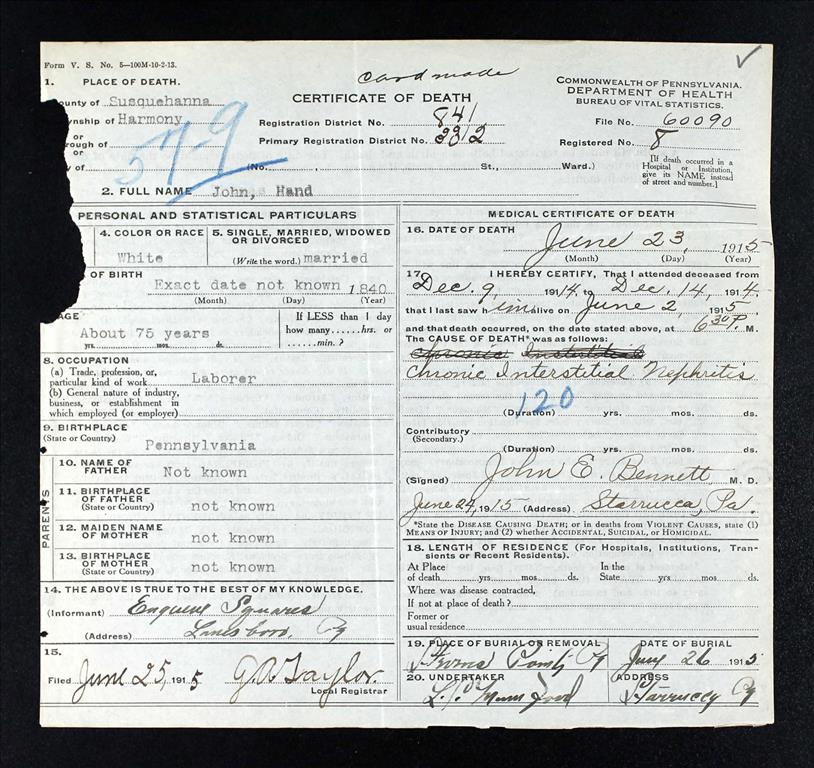 Form V. S. No. 5—100M-10-2-13.
card made
1. PLACE OF DEATH.
ounty of Susquehanna
wnship of Harmony
or
rough of
or
y of
579
CERTIFICATE OF DEATH
Registration District No. 841
Primary Registration District No. 3312
(No. , St., Ward.)
COMMONWEALTH OF PENNSYLVANIA.
DEPARTMENT OF HEALTH
BUREAU OF VITAL STATISTICS.
File No. 60090
Registered No. 8
[If death occurred in a
Hospital or Institution,
give its NAME instead
of street and number.]
2. FULL NAME John, Hand
PERSONAL AND STATISTICAL PARTICULARS
4. COLOR OR RACE
White
5. SINGLE, MARRIED, WIDOWED
OR DIVORCED
(Write the word.) married
OF BIRTH
Exact date not known 1840
(Month) (Day) (Year)
AGE
About 75 years
yrs. mos. ds.
If LESS than 1 day
how many......hrs. or
......min.?
8. OCCUPATION
(a) Trade, profession, or,
particular kind of work Laborer
(b) General nature of industry,
business, or establishment in
which employed (or employer)
9. BIRTHPLACE
(State or Country)
Pennsylvania
PARENTS
10. NAME OF
FATHER Not known
11. BIRTHPLACE
OF FATHER
(State or Country) not known
12. MAIDEN NAME
OF MOTHER not known
13. BIRTHPLACE
OF MOTHER
(State or Country) not known
14. THE ABOVE IS TRUE TO THE BEST OF MY KNOWLEDGE.
(Informant) Squares
(Address) Lanesboro, Pa
15.
Filed June 25, 1915 G.A. Taylor
Local Registrar
MEDICAL CERTIFICATE OF DEATH
16. DATE OF DEATH
June 23, 1915
(Month) (Day) (Year)
17. I HEREBY CERTIFY, That I attended deceased from
Dec. 9, 1914 to Dec. 14, 1914.
that I last saw him alive on June 2, 1915.
and that death occurred, on the date stated above, at 6 30 P. M.
The CAUSE OF DEATH* was as follows:
Chronic Interstitial Nephritis
120
(Duration) yrs. mos. ds.
Contributory
(Secondary.)
(Duration) yrs. mos. ds.
(Signed) John E. Bennett, M. D.
June 24, 1915 (Address) Starrucca, Pa.
*State the DISEASE CAUSING DEATH; or in deaths from VIOLENT CAUSES, state (1)
MEANS OF INJURY; and (2) whether ACCIDENTAL, SUICIDAL, or HOMICIDAL.
18. LENGTH OF RESIDENCE (For Hospitals, Institutions, Tran-
sients or Recent Residents).
At Place In the
of death......yrs. mos. ds. State......yrs. mos. ds.
Where was disease contracted,
If not at place of death?
Former or
usual residence
19. PLACE OF BURIAL OR REMOVAL
Stevens Point, Pa
DATE OF BURIAL
June 26 1915
20. UNDERTAKER
ADDRESS
Starrucca Pa